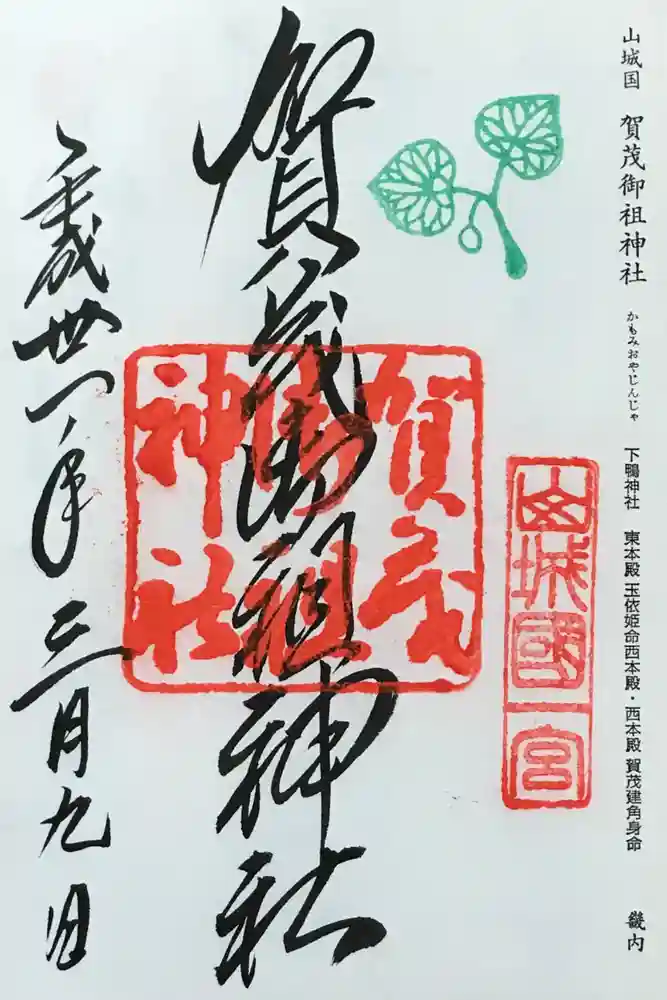 山城国 賀茂御祖神社 かもみおやじんじゃ 下鴨神社 東本殿 玉依姫命西本殿・西本殿 賀茂建角身命 畿内
山城國一宮
賀茂御祖神社
賀茂
御祖
神社
平成丗一年三月九日